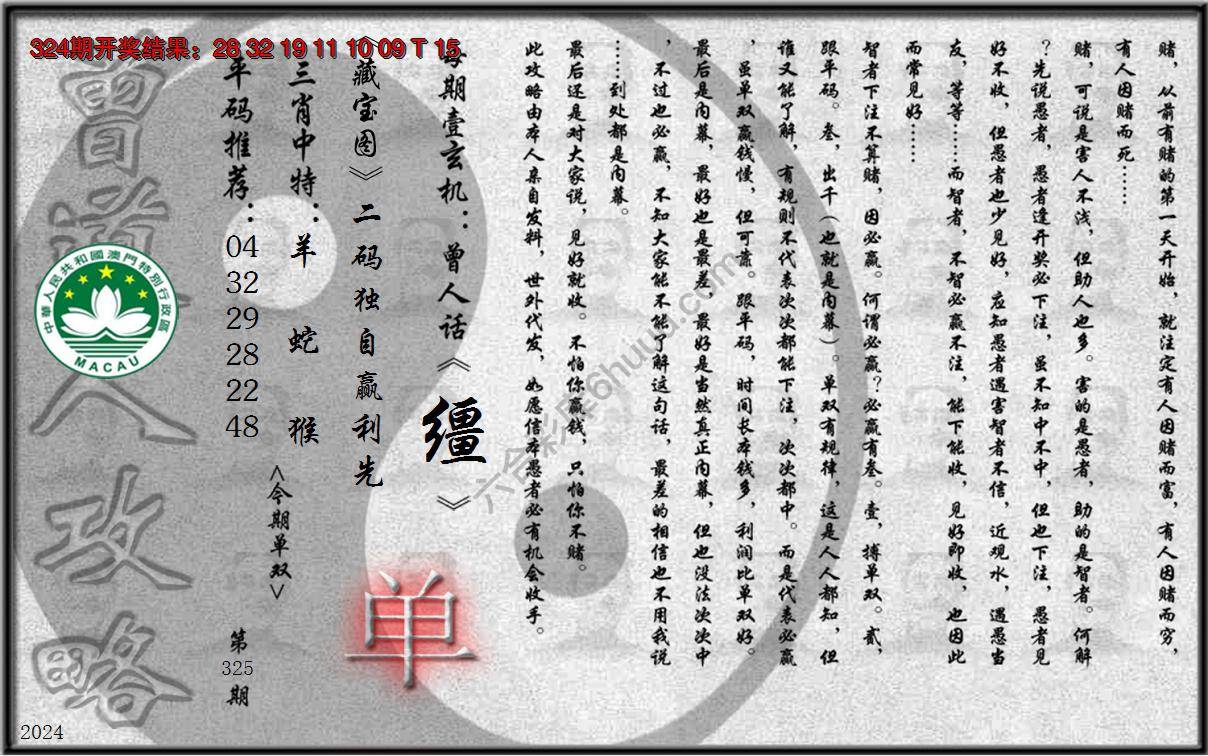 324期开奖结果：28 32 19 11 10 09 T 15
赌，从前有赌的第一天开始，就注定有人因赌而富，有人因赌而穷，
有人因赌而死……
赌，可说是害人不浅，但助人也多。害的是愚者，助的是智者。何解
？先说愚者，愚者逢开奖必下注，虽不知中不中，但也下注，愚者见
好不收，但愚者也少见好，应知愚者遇害智者不信，近观水，遇愚当
友，等等……而智者，不智必赢不注，能下能收，见好即收，也因此
而常见好……
智者下注不算赌，因必赢。何谓必赢？必赢有叁。壹，搏单双。贰，
跟平码。叁，出千（也就是内幕）。单双有规律，这是人人都知，但
谁又能了解，有规则不代表次次都能下注，次次都中。而是代表必赢
，虽单双赢钱慢，但可靠。跟平码，时间长本钱多，利润比单双好。
最后是内幕，最好也是最差，最好是当然真正内幕，但也没法次次中
，不过也必赢，不知大家能不能了解这句话，最差的相信也不用我说
……到处都是内幕。
最后还是对大家说，见好就收。不怕你赢钱，只怕你不赌。
此攻略由本人亲自发料，世外代发，如愿信本愚者必有机会收手。
每期壹玄机：曾人话《缰》
《藏宝图》二码独自赢利先
三肖中特：羊 蛇 猴
平码推荐：04 32 29 28 22 48
<今期单双>
单
第325期
曾道人攻略
中華人民共和國澳門特別行政區
MACAU
六合彩库6huuu.com
2024